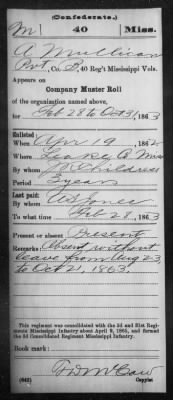 (Confederate.)
M 40 Miss.
A Mullican
Pvt, Co. B, 40 Reg't Mississippi Vols.
Appears on
Company Muster Roll
of the organization named above,
for Feb 28 to Oct 31, 1863
Enlisted:
When Apr 19, 1862
Where Leake Co Miss
By whom J R Childress
Period 3 years
Last paid:
By whom A S Jones
To what time Feb 28, 1863
Present or absent Present
Remarks: Absent without
leave from Aug 23
to Oct 21, 1863.
This regiment was consolidated with the 3d and 31st Regiments Mississippi Infantry about April 9, 1865, and formed the 3d Consolidated Regiment Mississippi Infantry.
Book mark:
(642) Copyist